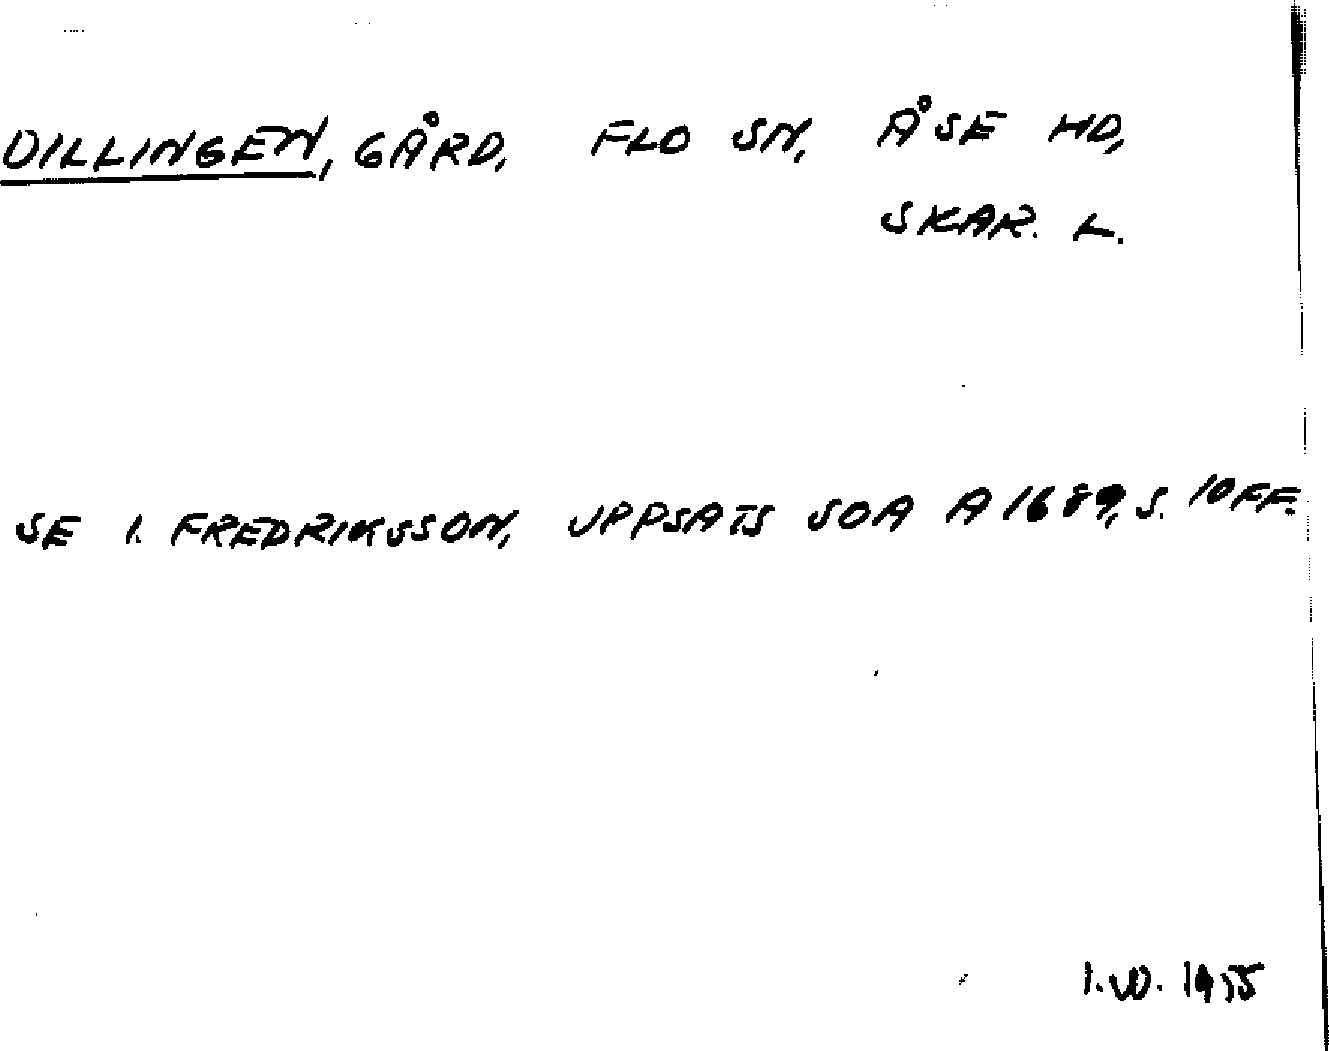 DILLINGEN, GÅRD, FLO SN, ÅSE HD,
SKAR. L.
SE I. FREDRIKSSON, UPPSATS SOA A 1689, S. 10 FF.
1975